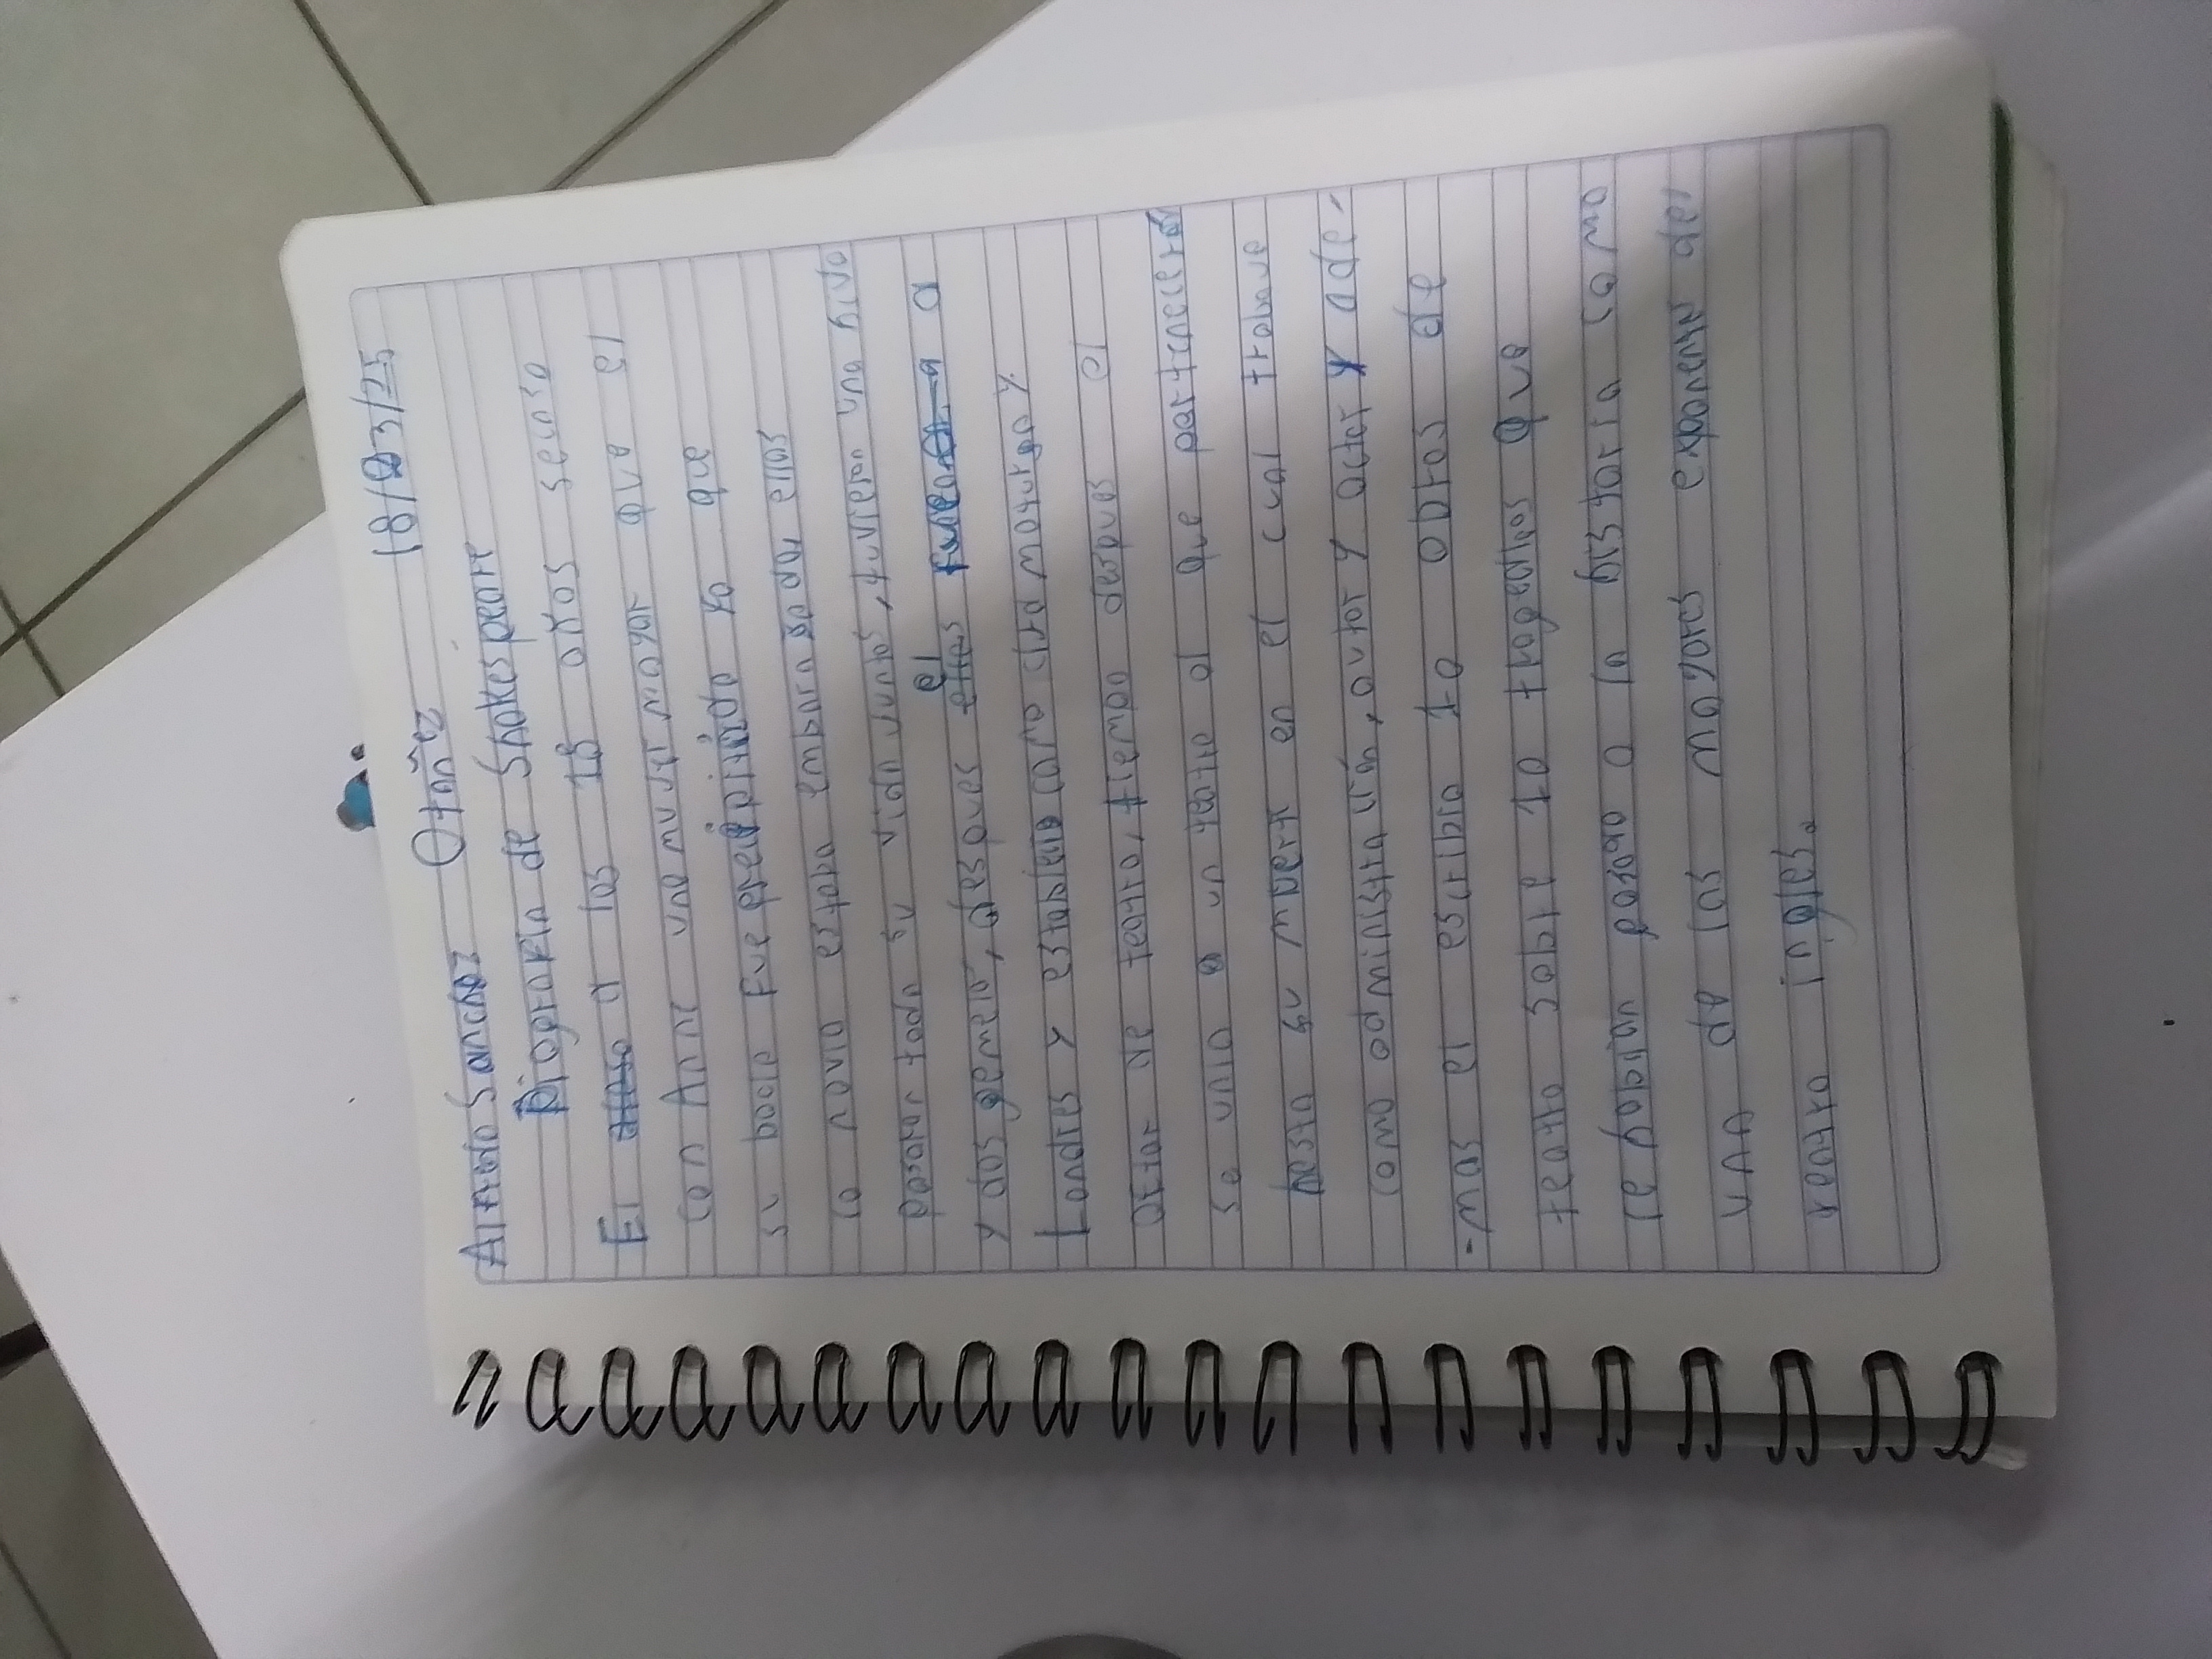 Alfredo Sanchez Otañez 18/03/25
Biografia de Shakespeare
El a los 18 años se caso
con Anne une mujer mayor que el
su boda fue precipitada ya que
la novia estaba embarazada, ellos
pasaron toda su vida juntos, tuvieron una hija
y dos gemelos, despues el a
Londres y establecio como dramaturgo y
actor de teatro, tiempo despues el
se unio a un teatro al que pertenecera
hasta su muert en el cual trabaue
como administra, autor y actor y ade-
-mas el escribio 10 obras de
teatro sobre 10 tragedias que
le habian pasado a la historia como
uno de los mayores exponente del
teatro ingles.